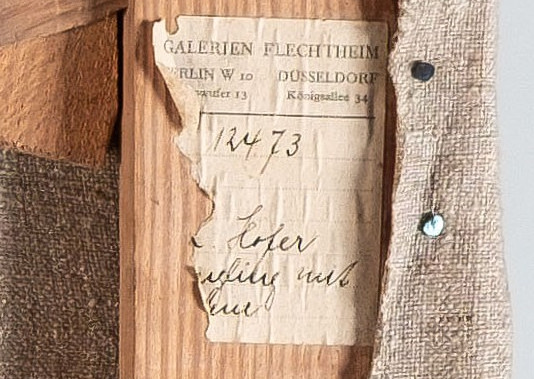 GALERIEN FLECHTHEIM
ERLIN W 10 DÜSSELDORF
wufer 13 Königsallee 34
12473
Hofer
ngling mit